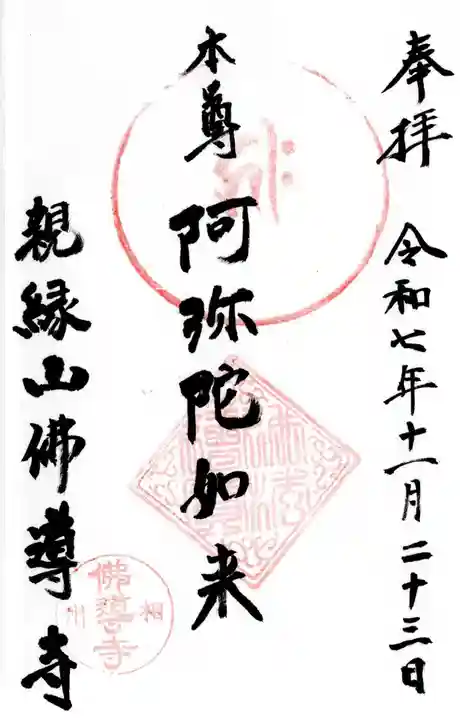 奉拝 令和七年十一月二十三日
本尊 阿弥陀如来
親縁山佛導寺
相州
佛導寺